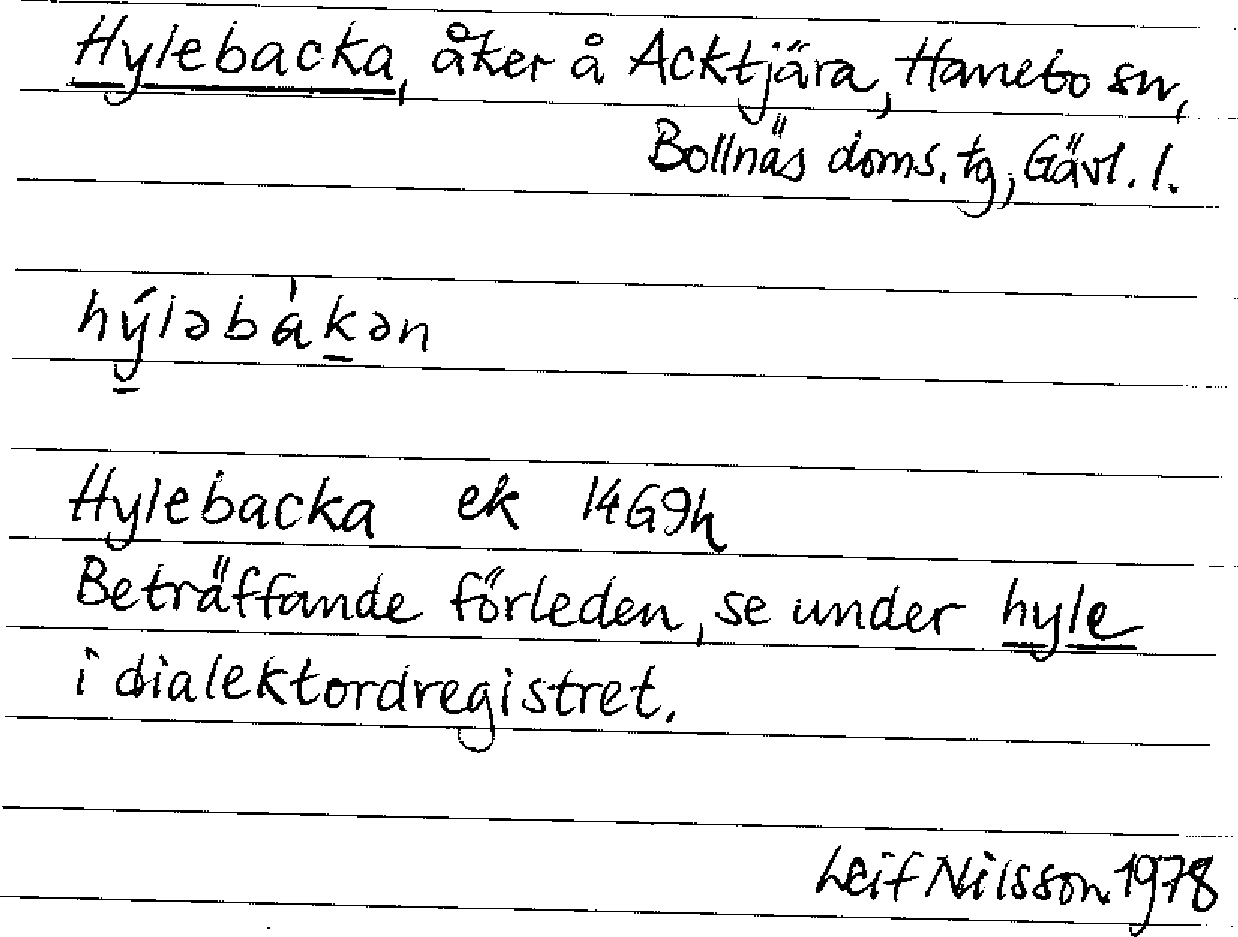 Hylebacka, åker å Acktjära, Hanebo sn,
Bollnäs doms. tg, Gävl. l.
hý̱ləbàḵən
Hylebacka ek 14G9h
Beträffande förleden, se under hyle
i dialektordregistret.
Leif Nilsson 1978